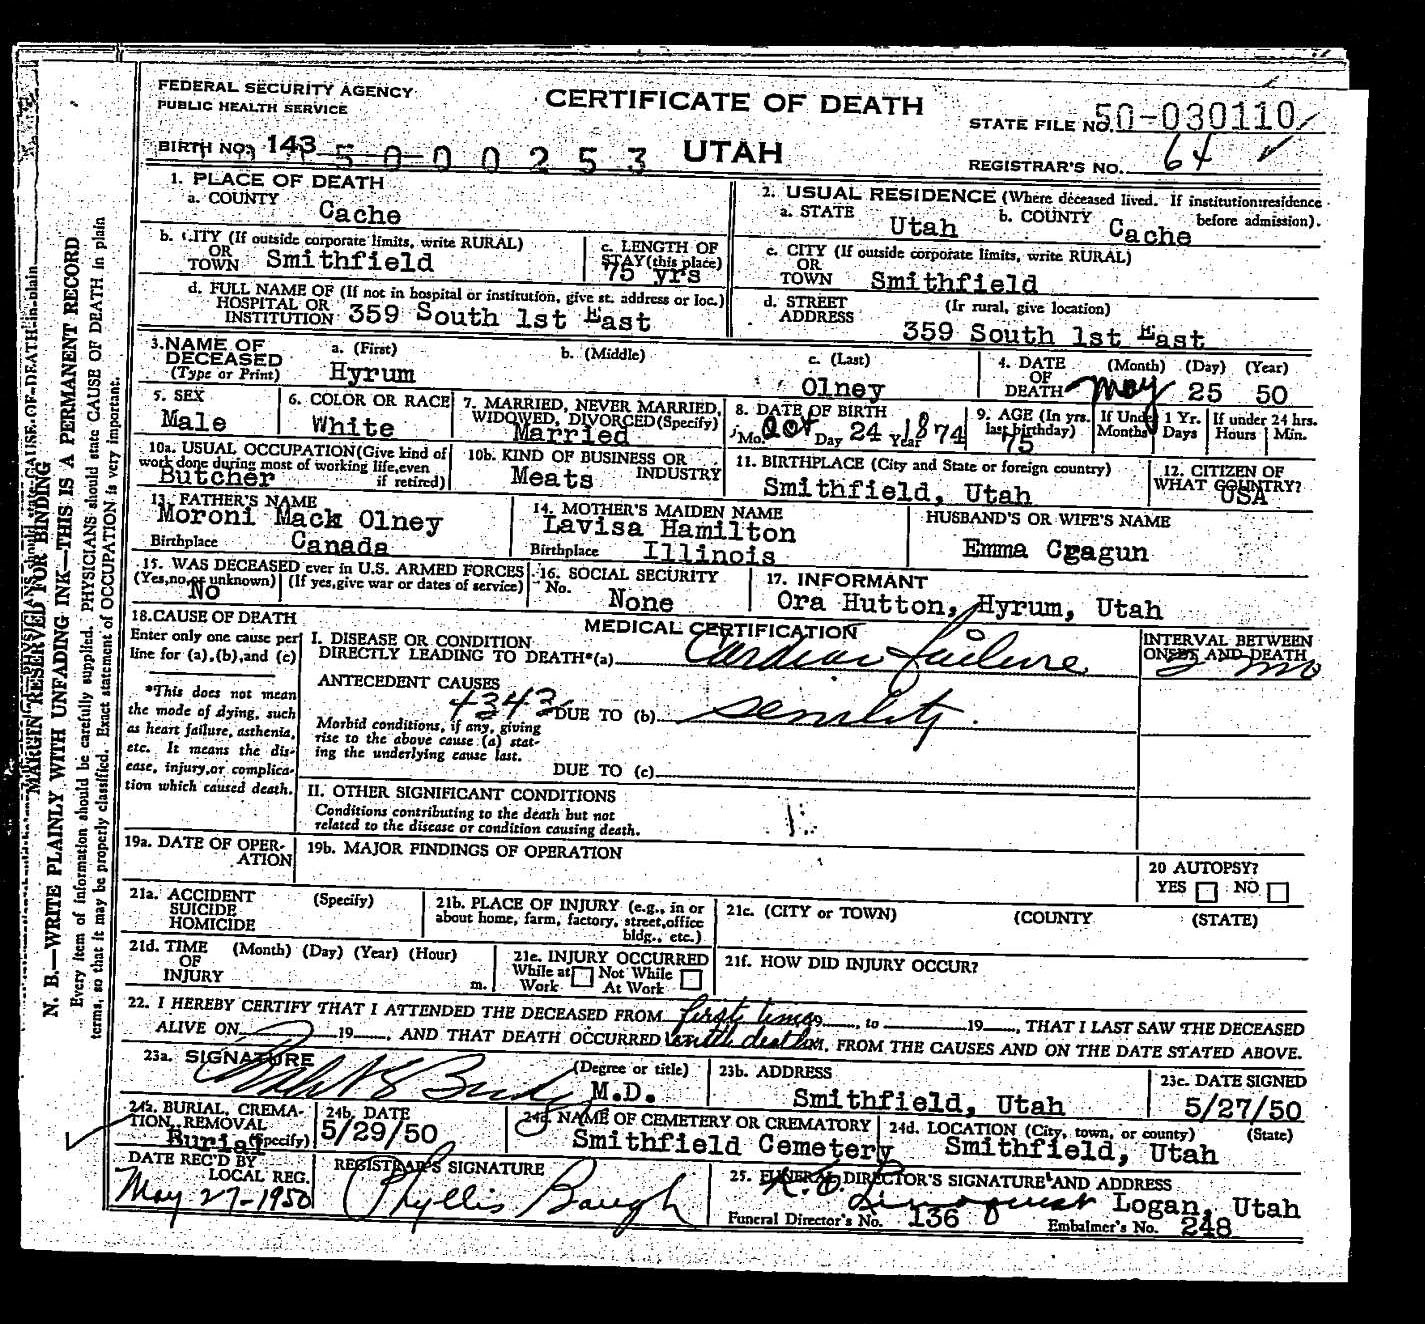 FEDERAL SECURITY AGENCY
PUBLIC HEALTH SERVICE
CERTIFICATE OF DEATH
STATE FILE NO. 50-030110
BIRTH NO. 143
5 0 0 0 2 5 3
UTAH
REGISTRAR'S NO. 64
1. PLACE OF DEATH
a. COUNTY
Cache
b. CITY (If outside corporate limits, write RURAL)
OR
TOWN Smithfield
c. LENGTH OF
STAY (this place)
75 yrs
d. FULL NAME OF (If not in hospital or institution, give st. address or loc.)
HOSPITAL OR
INSTITUTION 359 South 1st East
2. USUAL RESIDENCE (Where deceased lived. If institution:residence
before admission).
a. STATE
Utah
b. COUNTY
Cache
c. CITY (If outside corporate limits, write RURAL)
OR
TOWN Smithfield
d. STREET (If rural, give location)
ADDRESS
359 South 1st East
3. NAME OF
DECEASED
(Type or Print)
a. (First)
Hyrum
b. (Middle)
c. (Last)
Olney
4. DATE (Month) (Day) (Year)
OF
DEATH May 25 50
5. SEX
Male
6. COLOR OR RACE
White
7. MARRIED, NEVER MARRIED,
WIDOWED, DIVORCED (Specify)
Married
8. DATE OF BIRTH
Mo. Oct Day 24 Year 1874
9. AGE (In yrs.
last birthday)
75
If Under 1 Yr.
Months Days
If under 24 hrs.
Hours Min.
10a. USUAL OCCUPATION (Give kind of
work done during most of working life, even
if retired)
Butcher
10b. KIND OF BUSINESS OR
INDUSTRY
Meats
11. BIRTHPLACE (City and State or foreign country)
Smithfield, Utah
12. CITIZEN OF
WHAT COUNTRY?
USA
13. FATHER'S NAME
Moroni Mack Olney
Birthplace Canada
14. MOTHER'S MAIDEN NAME
Lavisa Hamilton
Birthplace Illinois
HUSBAND'S OR WIFE'S NAME
Emma Cragun
15. WAS DECEASED ever in U.S. ARMED FORCES
(Yes, no, or unknown) (If yes, give war or dates of service)
No
16. SOCIAL SECURITY
No.
None
17. INFORMANT
Ora Hutton, Hyrum, Utah
18. CAUSE OF DEATH
Enter only one cause per
line for (a), (b), and (c)
*This does not mean
the mode of dying, such
as heart failure, asthenia,
etc. It means the dis-
ease, injury, or complica-
tion which caused death.
MEDICAL CERTIFICATION
I. DISEASE OR CONDITION
DIRECTLY LEADING TO DEATH*(a) Cardiac failure
INTERVAL BETWEEN
ONSET AND DEATH
mo
ANTECEDENT CAUSES
4343
DUE TO (b) Senility.
Morbid conditions, if any, giving
rise to the above cause (a) stat-
ing the underlying cause last.
DUE TO (c)
II. OTHER SIGNIFICANT CONDITIONS
Conditions contributing to the death but not
related to the disease or condition causing death.
19a. DATE OF OPER-
ATION
19b. MAJOR FINDINGS OF OPERATION
20 AUTOPSY?
YES NO
21a. ACCIDENT (Specify)
SUICIDE
HOMICIDE
21b. PLACE OF INJURY (e.g., in or
about home, farm, factory, street, office
bldg., etc.)
21c. (CITY or TOWN) (COUNTY (STATE)
21d. TIME (Month) (Day) (Year) (Hour)
OF
INJURY m.
21e. INJURY OCCURRED
While at Not While
Work At Work
21f. HOW DID INJURY OCCUR?
22. I HEREBY CERTIFY THAT I ATTENDED THE DECEASED FROM first time, to 19, THAT I LAST SAW THE DECEASED
ALIVE ON 19, AND THAT DEATH OCCURRED until death M, FROM THE CAUSES AND ON THE DATE STATED ABOVE.
23a. SIGNATURE
(Degree or title)
M.D.
23b. ADDRESS
Smithfield, Utah
23c. DATE SIGNED
5/27/50
24a. BURIAL, CREMA-
TION, REMOVAL
(Specify)
Burial
24b. DATE
5/29/50
24c. NAME OF CEMETERY OR CREMATORY
Smithfield Cemetery
24d. LOCATION (City, town, or county) (State)
Smithfield, Utah
DATE REC'D BY
LOCAL REG.
May 27-1950
REGISTRAR'S SIGNATURE
Phyllis Baugh
25. FUNERAL DIRECTOR'S SIGNATURE AND ADDRESS
Lindquist Logan, Utah
Funeral Director's No. 136
Embalmer's No. 248
MARGIN RESERVED FOR BINDING
N. B.—WRITE PLAINLY WITH UNFADING INK—THIS IS A PERMANENT RECORD
Every item of information should be carefully supplied. PHYSICIANS should state CAUSE OF DEATH in plain
terms, so that it may be properly classified. Exact statement of OCCUPATION is very important.